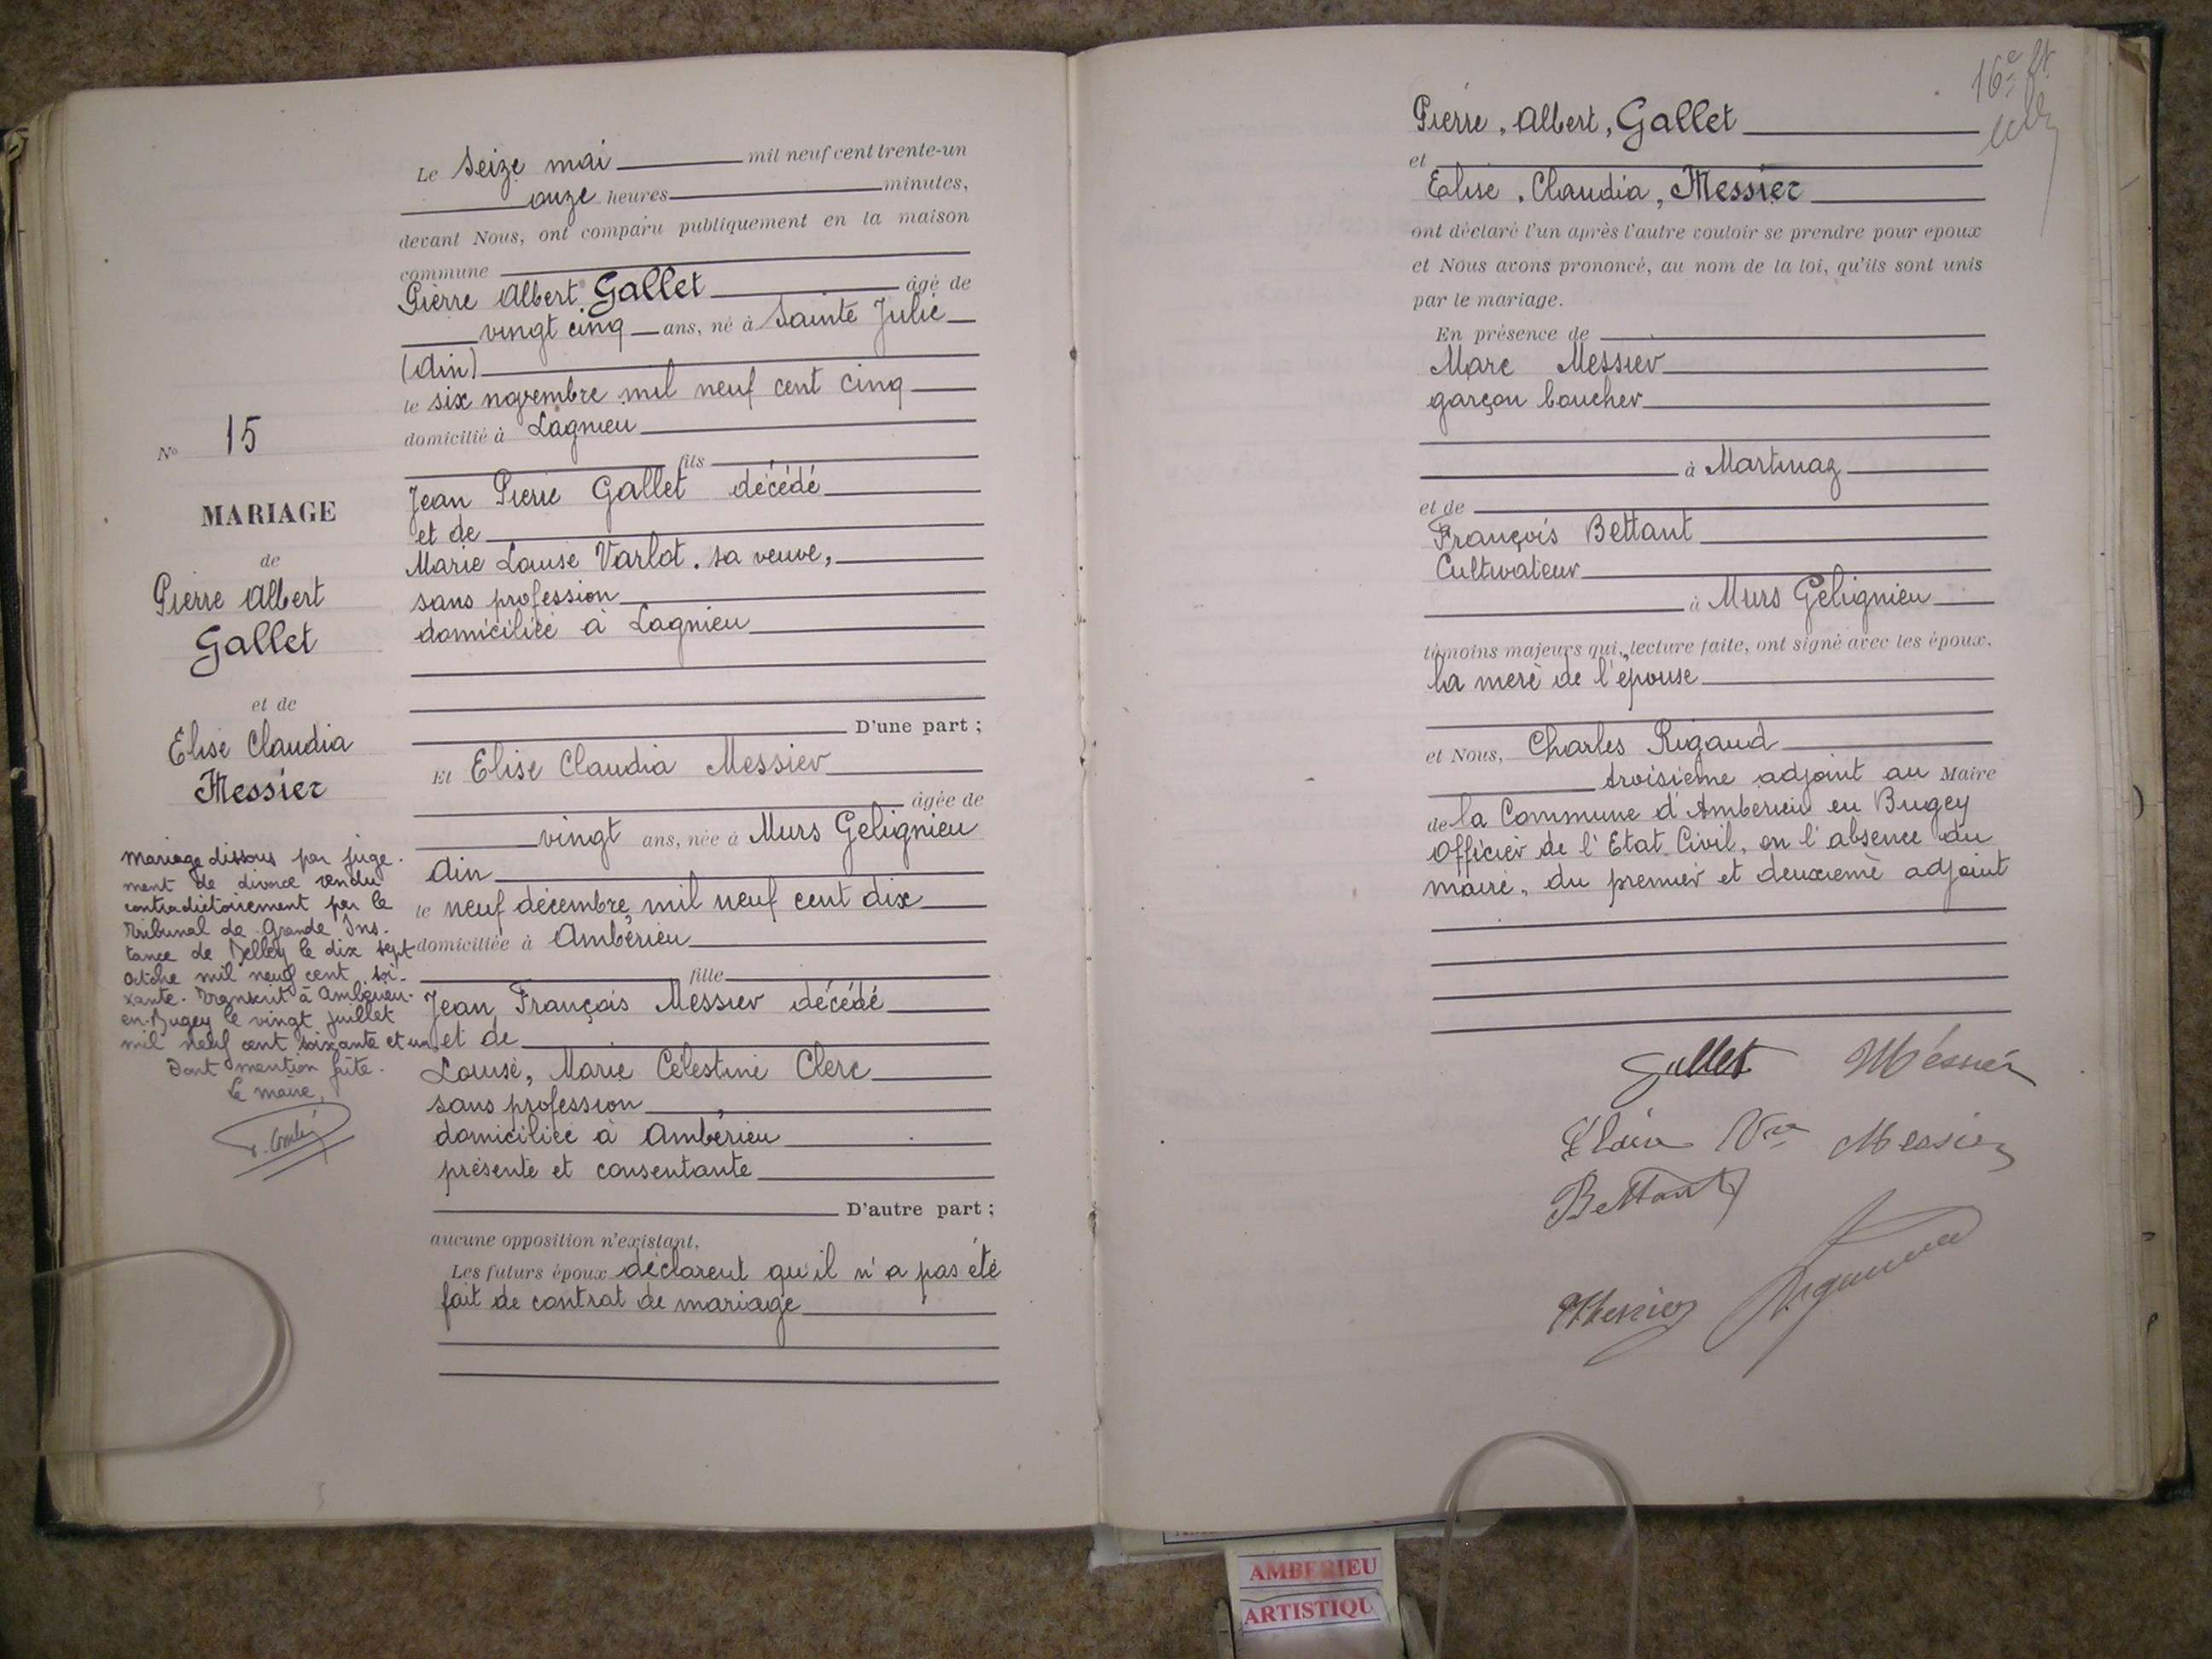 N° 15
MARIAGE
de
Pierre Albert
Gallet
et de
Elise Claudia
Messier
Mariage dissous par juge-
ment de divorce rendu
contradictoirement par le
Tribunal de Grande Ins-
tance de Belley le dix sept
octobre mil neuf cent soi-
xante. Transcrit à Ambérieu-
en-Bugey le vingt juillet
mil neuf cent soixante et un
Dont mention faite.
Le maire,
Le Seize mai mil neuf cent trente-un
onze heures minutes,
devant Nous, ont comparu publiquement en la maison
commune
Pierre Albert Gallet âgé de
vingt cinq ans, né à Sainte Julie
(Ain)
le six novembre mil neuf cent cinq
domicilié à Lagnieu
fils
Jean Pierre Gallet décédé
et de
Marie Louise Varlot. sa veuve,
sans profession
domiciliée à Lagnieu
D'une part ;
Et Elise Claudia Messier
âgée de
vingt ans, née à Murs Gelignieu
Ain
le neuf décembre mil neuf cent dix
domiciliée à Ambérieu
fille
Jean François Messier décédé
et de
Louise, Marie Célestine Clerc
sans profession
domiciliée à Ambérieu
présente et consentante
D'autre part ;
aucune opposition n'existant,
Les futurs époux déclarent qu'il n'a pas été
fait de contrat de mariage
16e
Pierre, Albert, Gallet
et
Elise, Claudia, Messier
ont déclaré l'un après l'autre vouloir se prendre pour epoux
et Nous avons prononcé, au nom de la loi, qu'ils sont unis
par le mariage.
En présence de
Marc Messier
garçon boucher
à Martinaz
et de
François Bettant
Cultivateur
à Murs Gelignieu
témoins majeurs qui, lecture faite, ont signé avec les époux,
la mère de l'épouse
et Nous, Charles Rigaud
troisième adjoint au Maire
de la Commune d'Ambérieu en Bugey
Officier de l'Etat Civil, en l'absence du
maire, du premier et deuxième adjoint
Gallet Messier
Vve Messier
Bettant
Messier Rigaud
AMBERIEU
ARTISTIQU